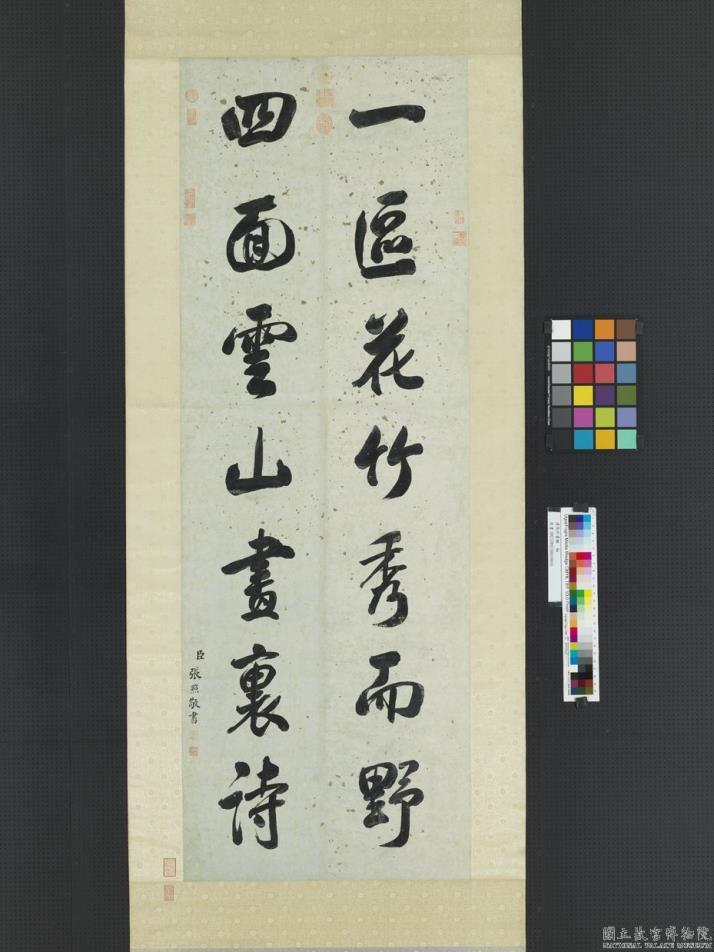 一區花竹秀而野
四面雲山畫裏詩
臣張照敬書
國立故宮博物院
NATIONAL PALACE MUSEUM